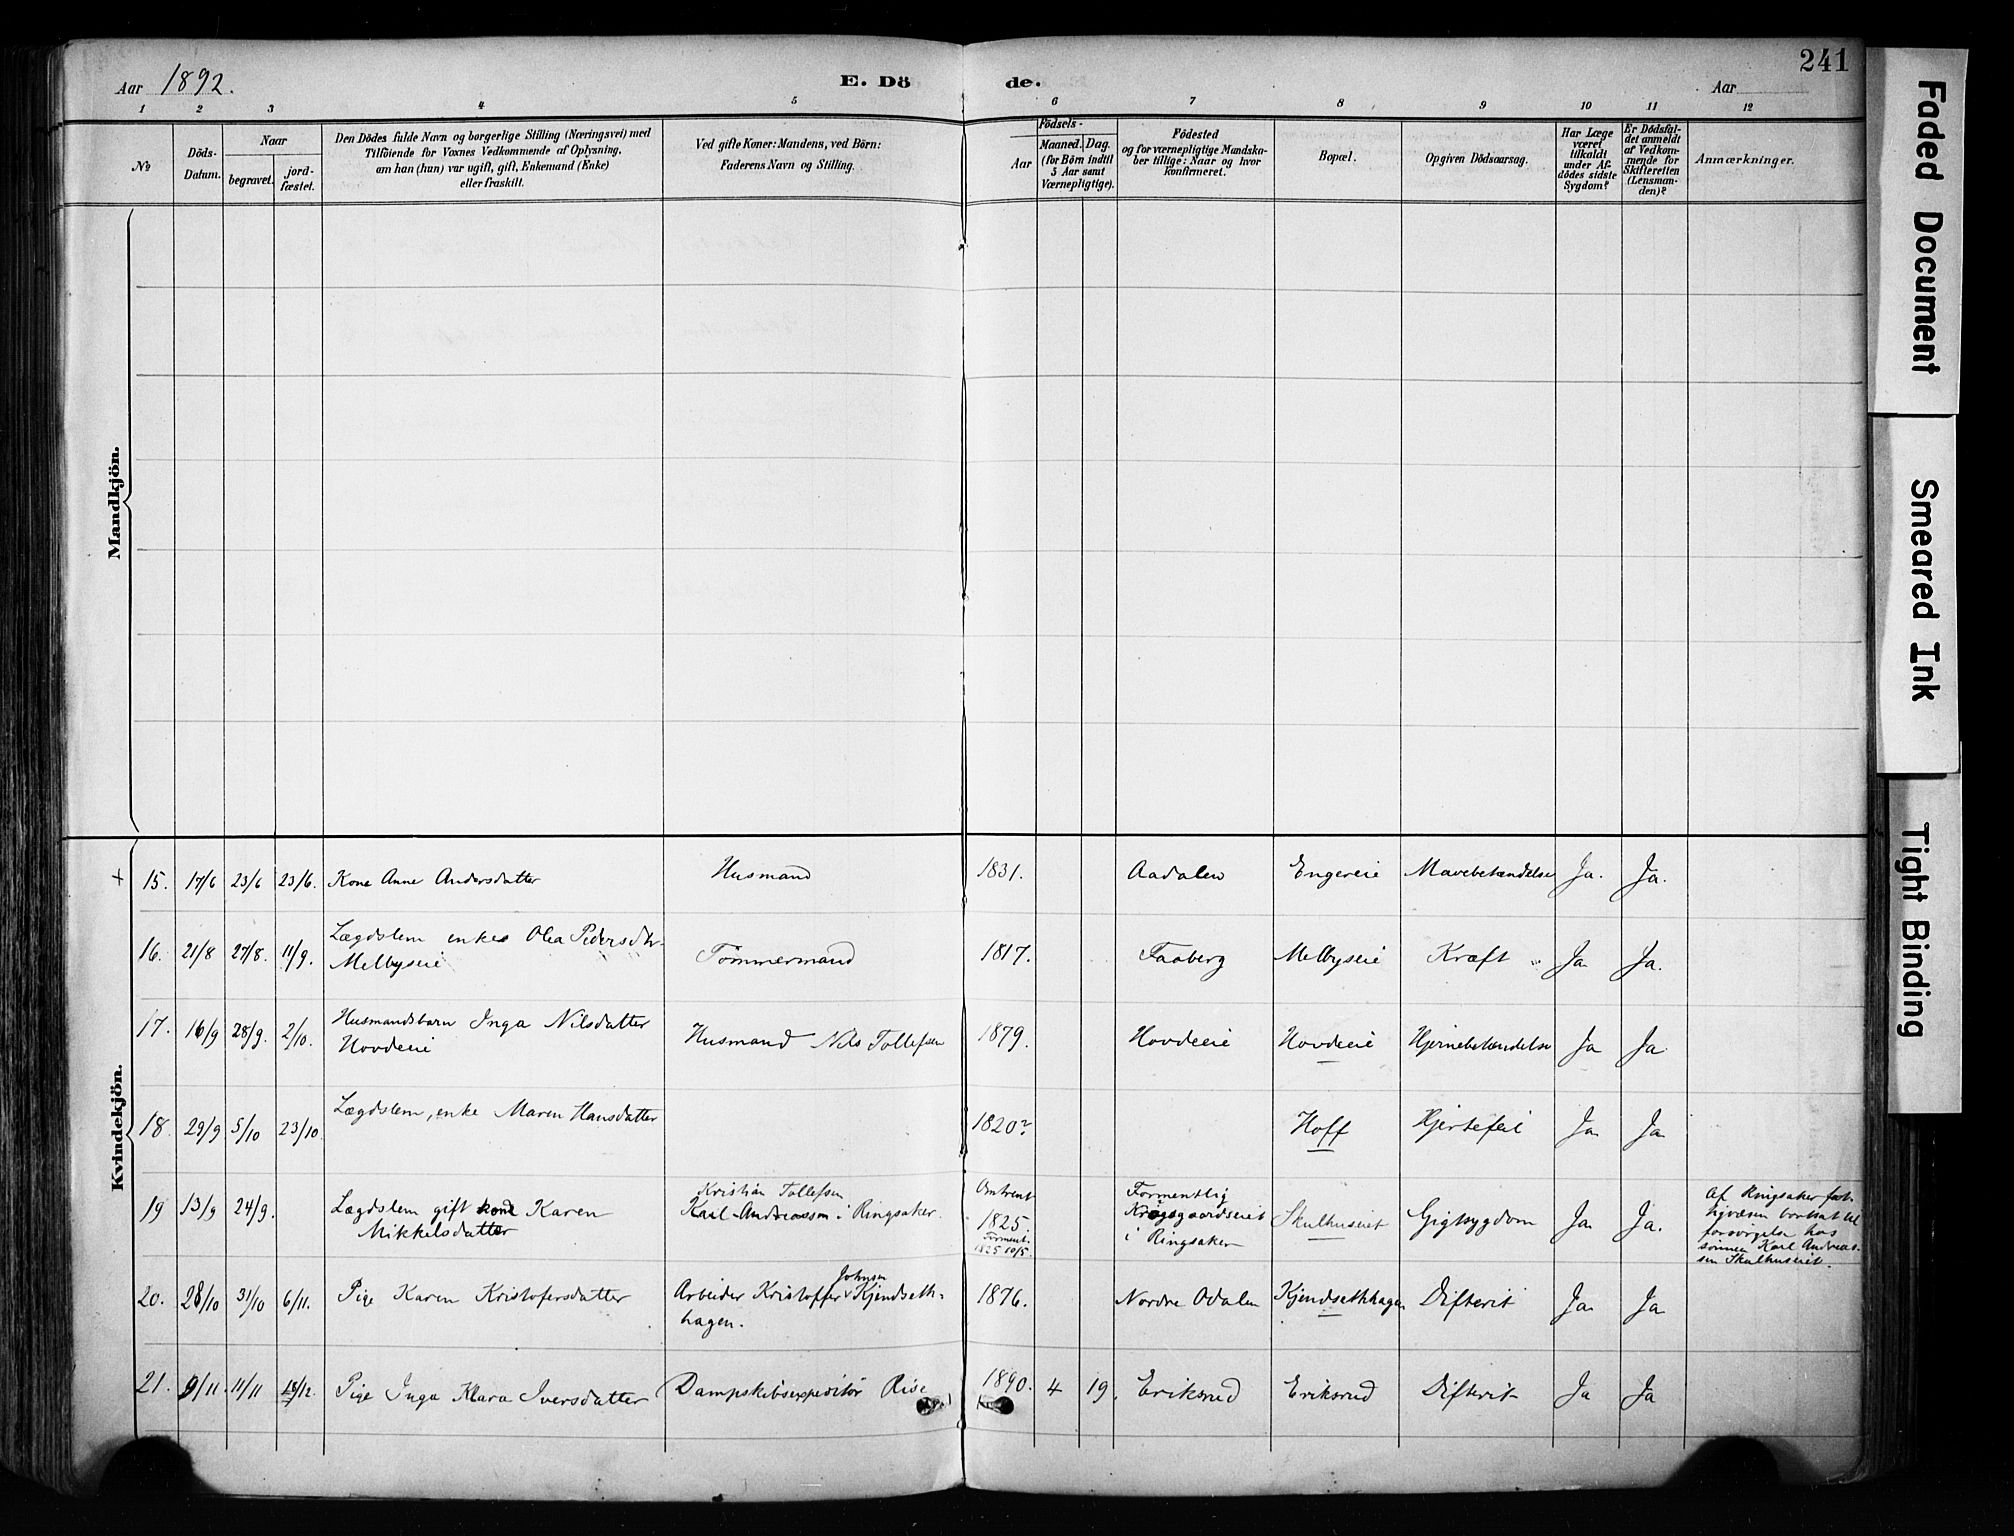 241
Aar 1892.
E. Dö de.
Aar
1 2 3 4 5 6 7 8 9 10 11 12
№
Döds-
Datum.
Naar
begravet.
jord-
fæstet.
Den Dödes fulde Navn og borgerlige Stilling (Næringsvei) med
Tilföiende for Voxnes Vedkommende af Oplysning,
om han (hun) var ugift, gift, Enkemand (Enke)
eller fraskilt.
Ved gifte Koner: Mandens, ved Börn:
Faderens Navn og Stilling.
Födsels-
Aar
Maaned. Dag.
(for Börn indtil
5 Aar samt
Værnepligtige).
Födested
og for værnepligtige Mandska-
ber tillige: Naar og hvor
konfirmeret.
Bopæl.
Opgiven Dödsaarsag.
Har Læge
været
tilkaldt
under Af-
dödes sidste
Sygdom?
Er Dödsfal-
det anmeldt
af Vedkom-
mende for
Skifteretten
(Lensman-
den)?
Anmærkninger.
Mandkjön.
Kvindekjön.
+ 15. 17/6 23/6 23/6. Kone Anne Andersdatter Husmand 1831. Aadalen Engereie Mavebetændelse Ja. Ja.
16. 21/8 27/8. 11/9. Lægdslem enkes Olea Pedersdtr.
Melbyseie Tömmermand 1817. Faaberg Melbyseie Kræft Ja Ja.
17. 16/9 28/9. 2/10. Husmandsbarn Inga Nilsdatter
Hovdeeie Husmand Nils Tollefsen 1879. Hovdeeie Hovdeeie Hjernebetændelse Ja Ja
18. 29/9 5/10 23/10. Lægdslem, enke Maren Hansdatter 1820? Hoff Hjertefeil Ja Ja
19 13/9 24/9. Lægdslem gift kone Karen
Mikkelsdatter
Kristian Tollefsen
Karl Andreassen i Ringsaker.
Omtrent
1825.
Forment.
1825 10/5.
Formentlig
Krøgsgaardseiet
i Ringsaker
Skulhuseiet Gigtsygdom Ja Ja.
Af Ringsaker fat-
tigvæsen bortsat til
forsörgelse hos
sönnen Karl Andreas-
sen Skulhuseiet.
20. 28/10 31/10 6/11. Pige Karen Kristofersdatter Arbeider Kristoffer Johnsen Kjendseth-
hagen. 1876. Nordre Odalen Kjendsethhagen Difterit Ja Ja
21. 9/11. 11/11 18/12. Pige Inga Klara Iversdatter Dampskibsexpeditör Rise 1890. 4 19. Eriksrud Eriksrud Difterit Ja Ja
Faded Document
Smeared Ink
Tight Binding